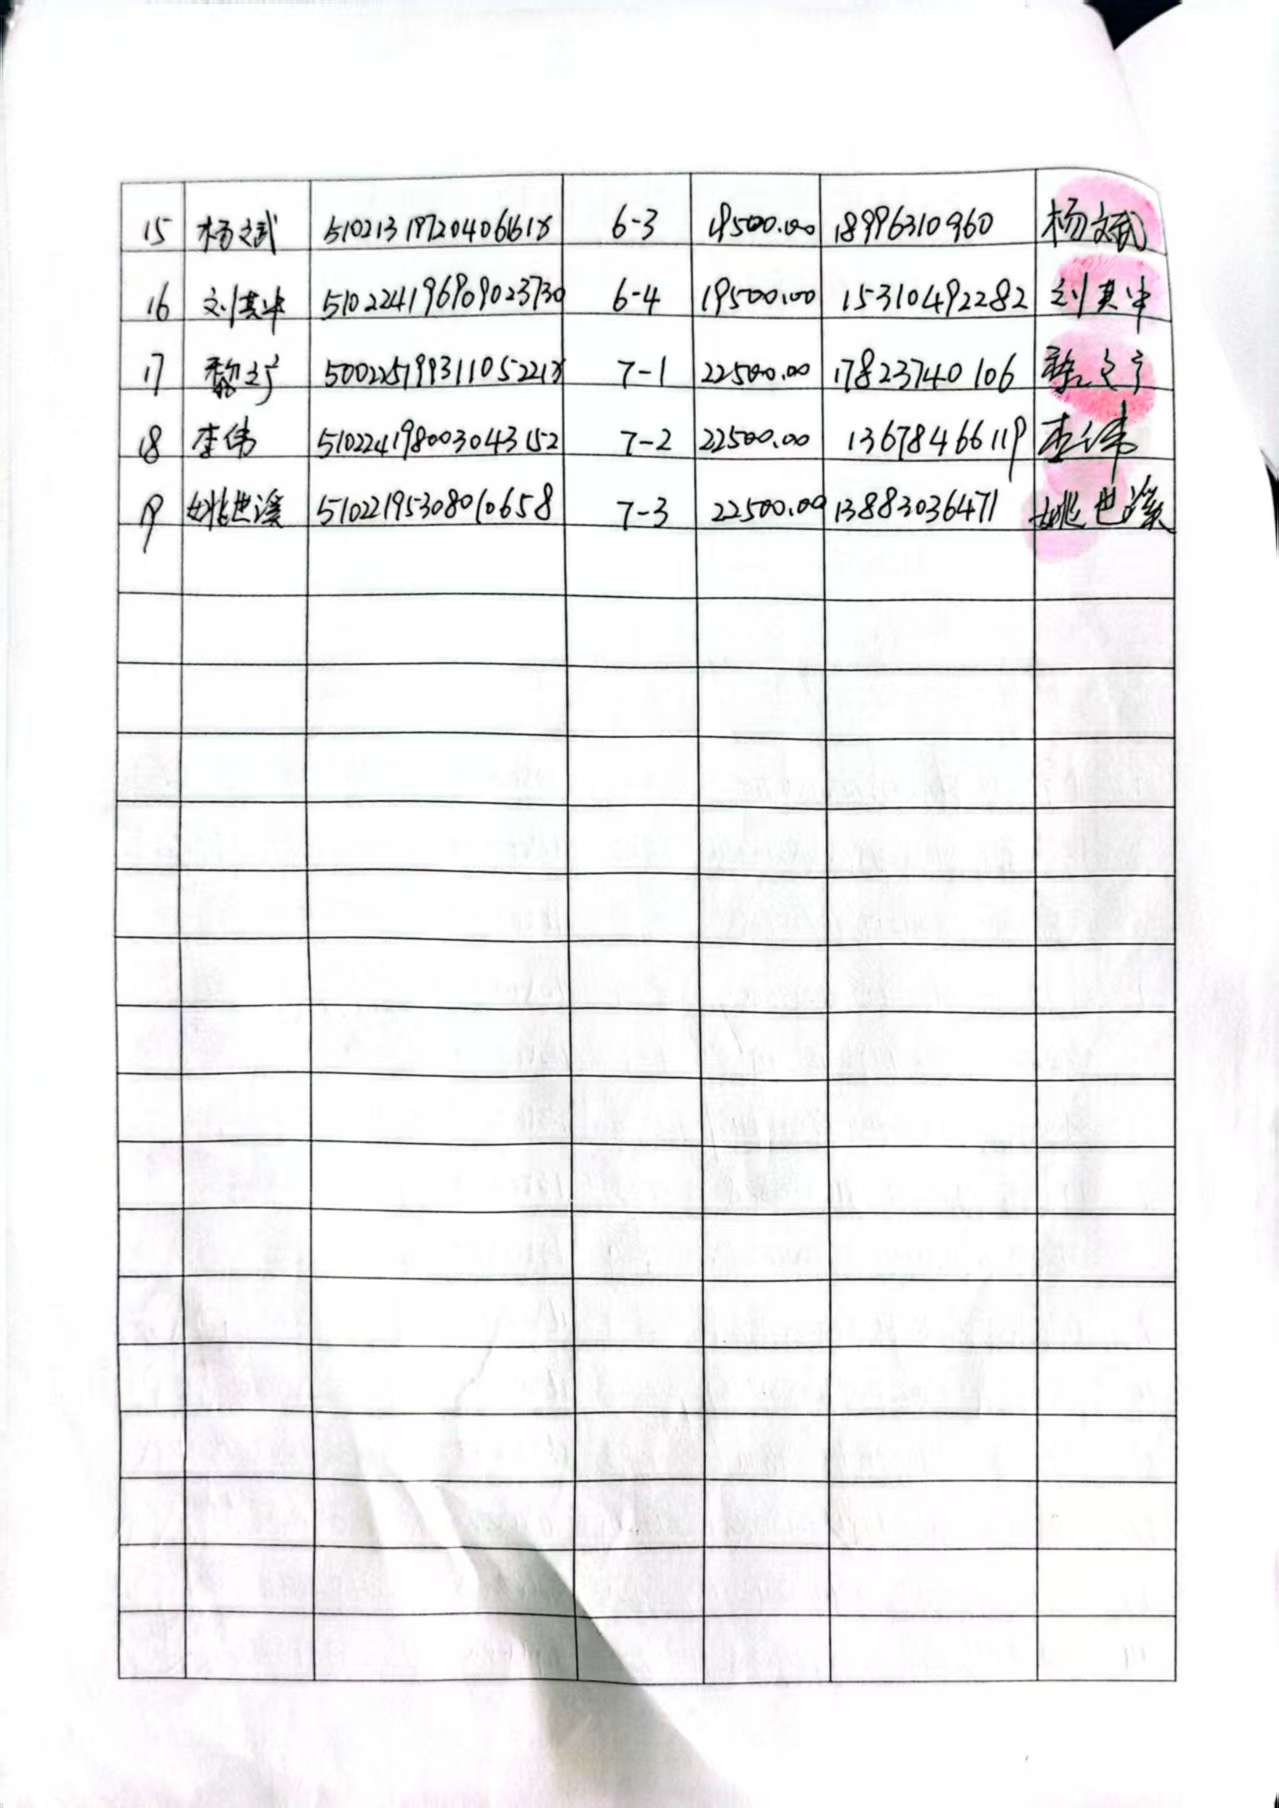 15 杨文武 5102131972040661X 6-3 19500.00 18996310960 杨文武
16 刘其中 510224196909023730 6-4 19500.00 15310492282 刘其中
17 黎之 50022519931105221X 7-1 22500.00 17823740106
18 李伟 510224198003043152 7-2 22500.00 13678466119 李伟
19 姚世溪 510221195308010658 7-3 22500.00 13883036471 姚世溪